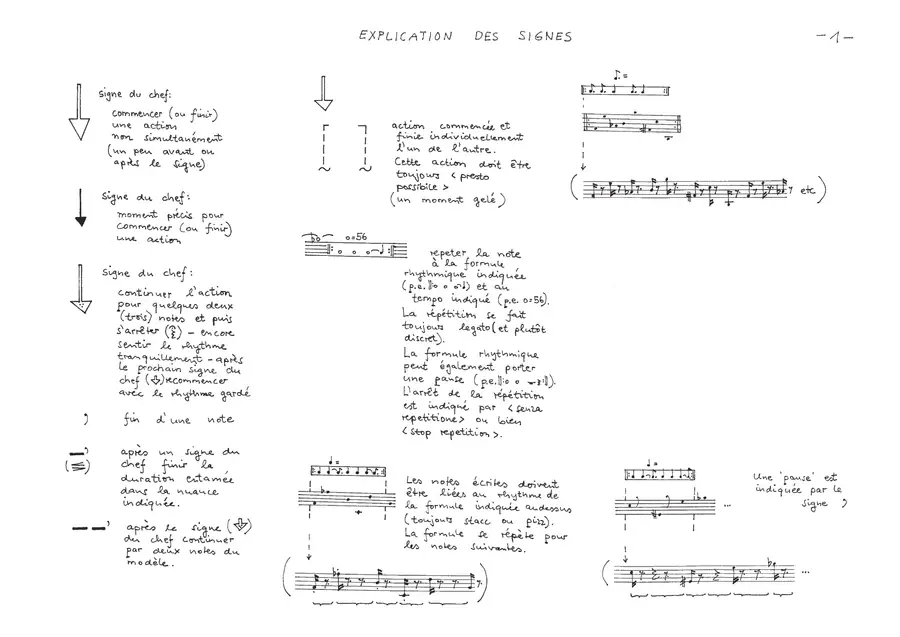 EXPLICATION DES SIGNES
-1-
Signe du chef:
commencer (ou finir)
une action
non simultanément
(un peu avant ou
après le signe)
Signe du chef:
moment précis pour
commencer (ou finir)
une action
Signe du chef:
continuer l'action
pour quelques deux
(trois) notes et puis
s'arrêter ( ) – encore
sentir le rhythme
tranquillement – après
le prochain signe du
chef ( ) recommencer
avec le rhythme gardé
fin d'une note
après un signe du
chef finir la
duration entamée
dans la nuance
indiquée.
après le signe ( )
du chef continuer
par deux notes du
modèle.
action commencée et
finie individuellement
l'un de l'autre.
Cette action doit être
toujours <presto
possibile>
(un moment gelé)
o=56
repeter la note
à la formule
rhythmique indiquée
(p.e. ) et au
tempo indiqué (p.e. o=56).
La répétition se fait
toujours legato (et plutôt
discret).
La formule rhythmique
peut également porter
une pause (p.e. ).
L'arrêt de la répétition
est indiqué par <senza
repetitione> ou bien
<stop repetition>.
Les notes écrites doivent
être liées au rhythme de
la formule indiquée audessus
(toujours stacc ou pizz).
La formule se répète pour
les notes suivantes.
etc
Une 'pause' est
indiquée par le
signe
...
...